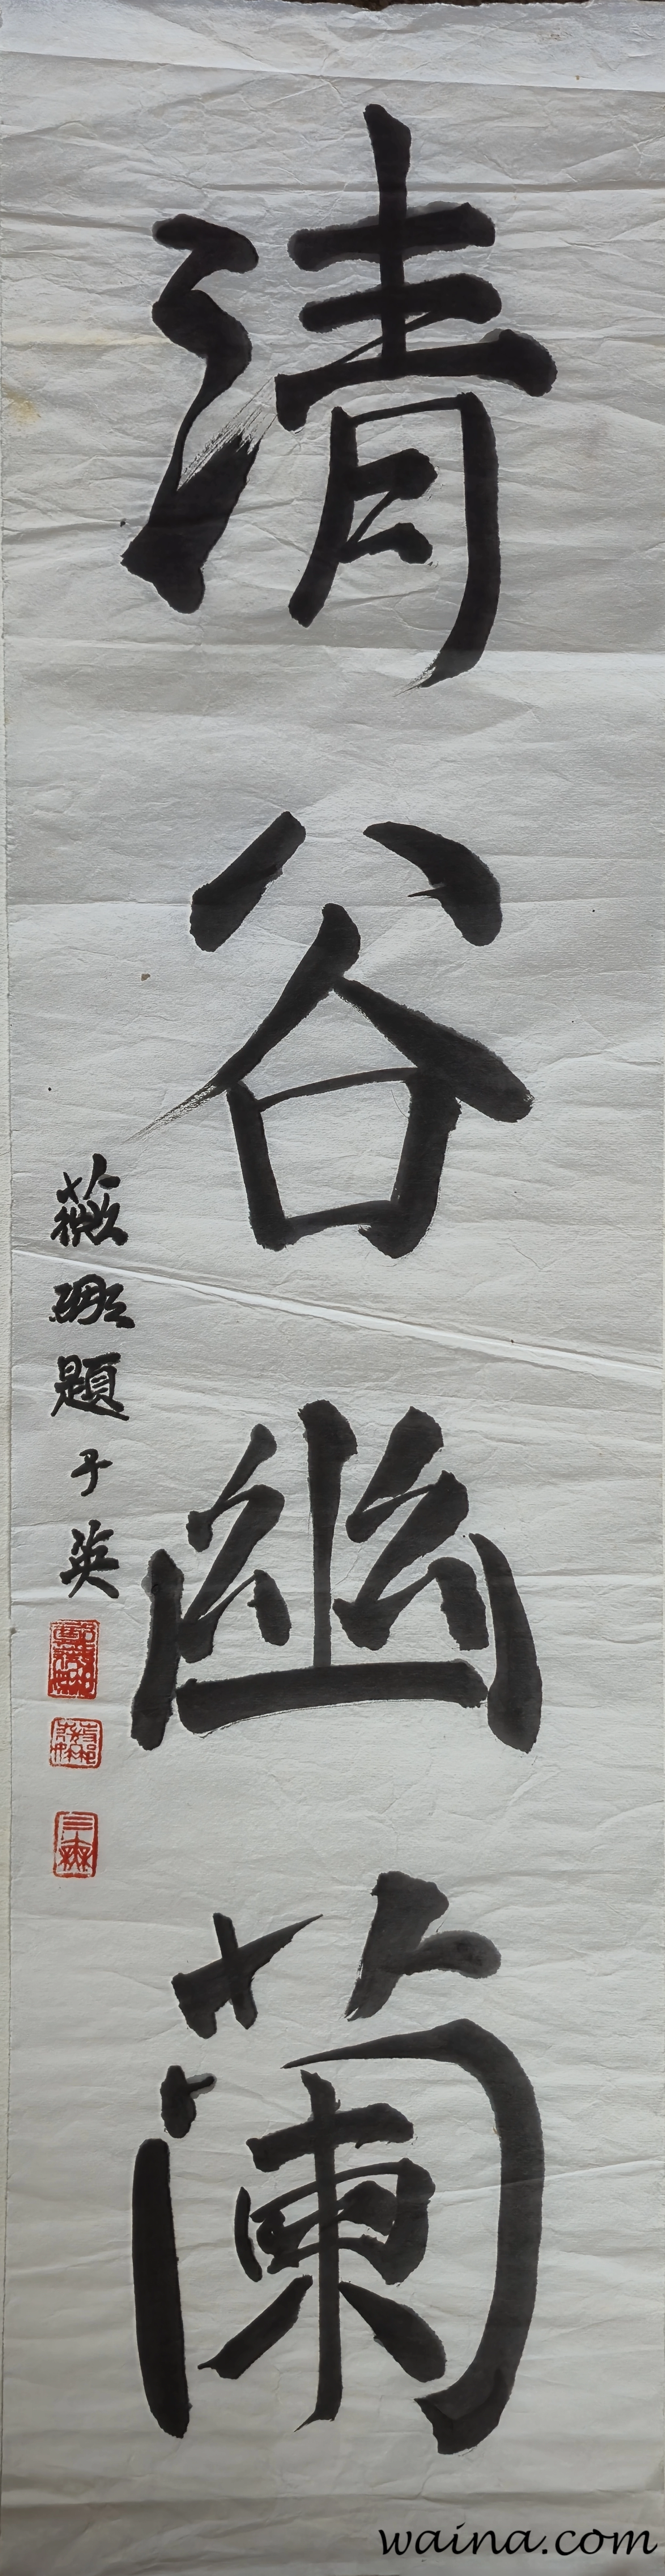 清谷幽蘭
薇題子英
waina.com